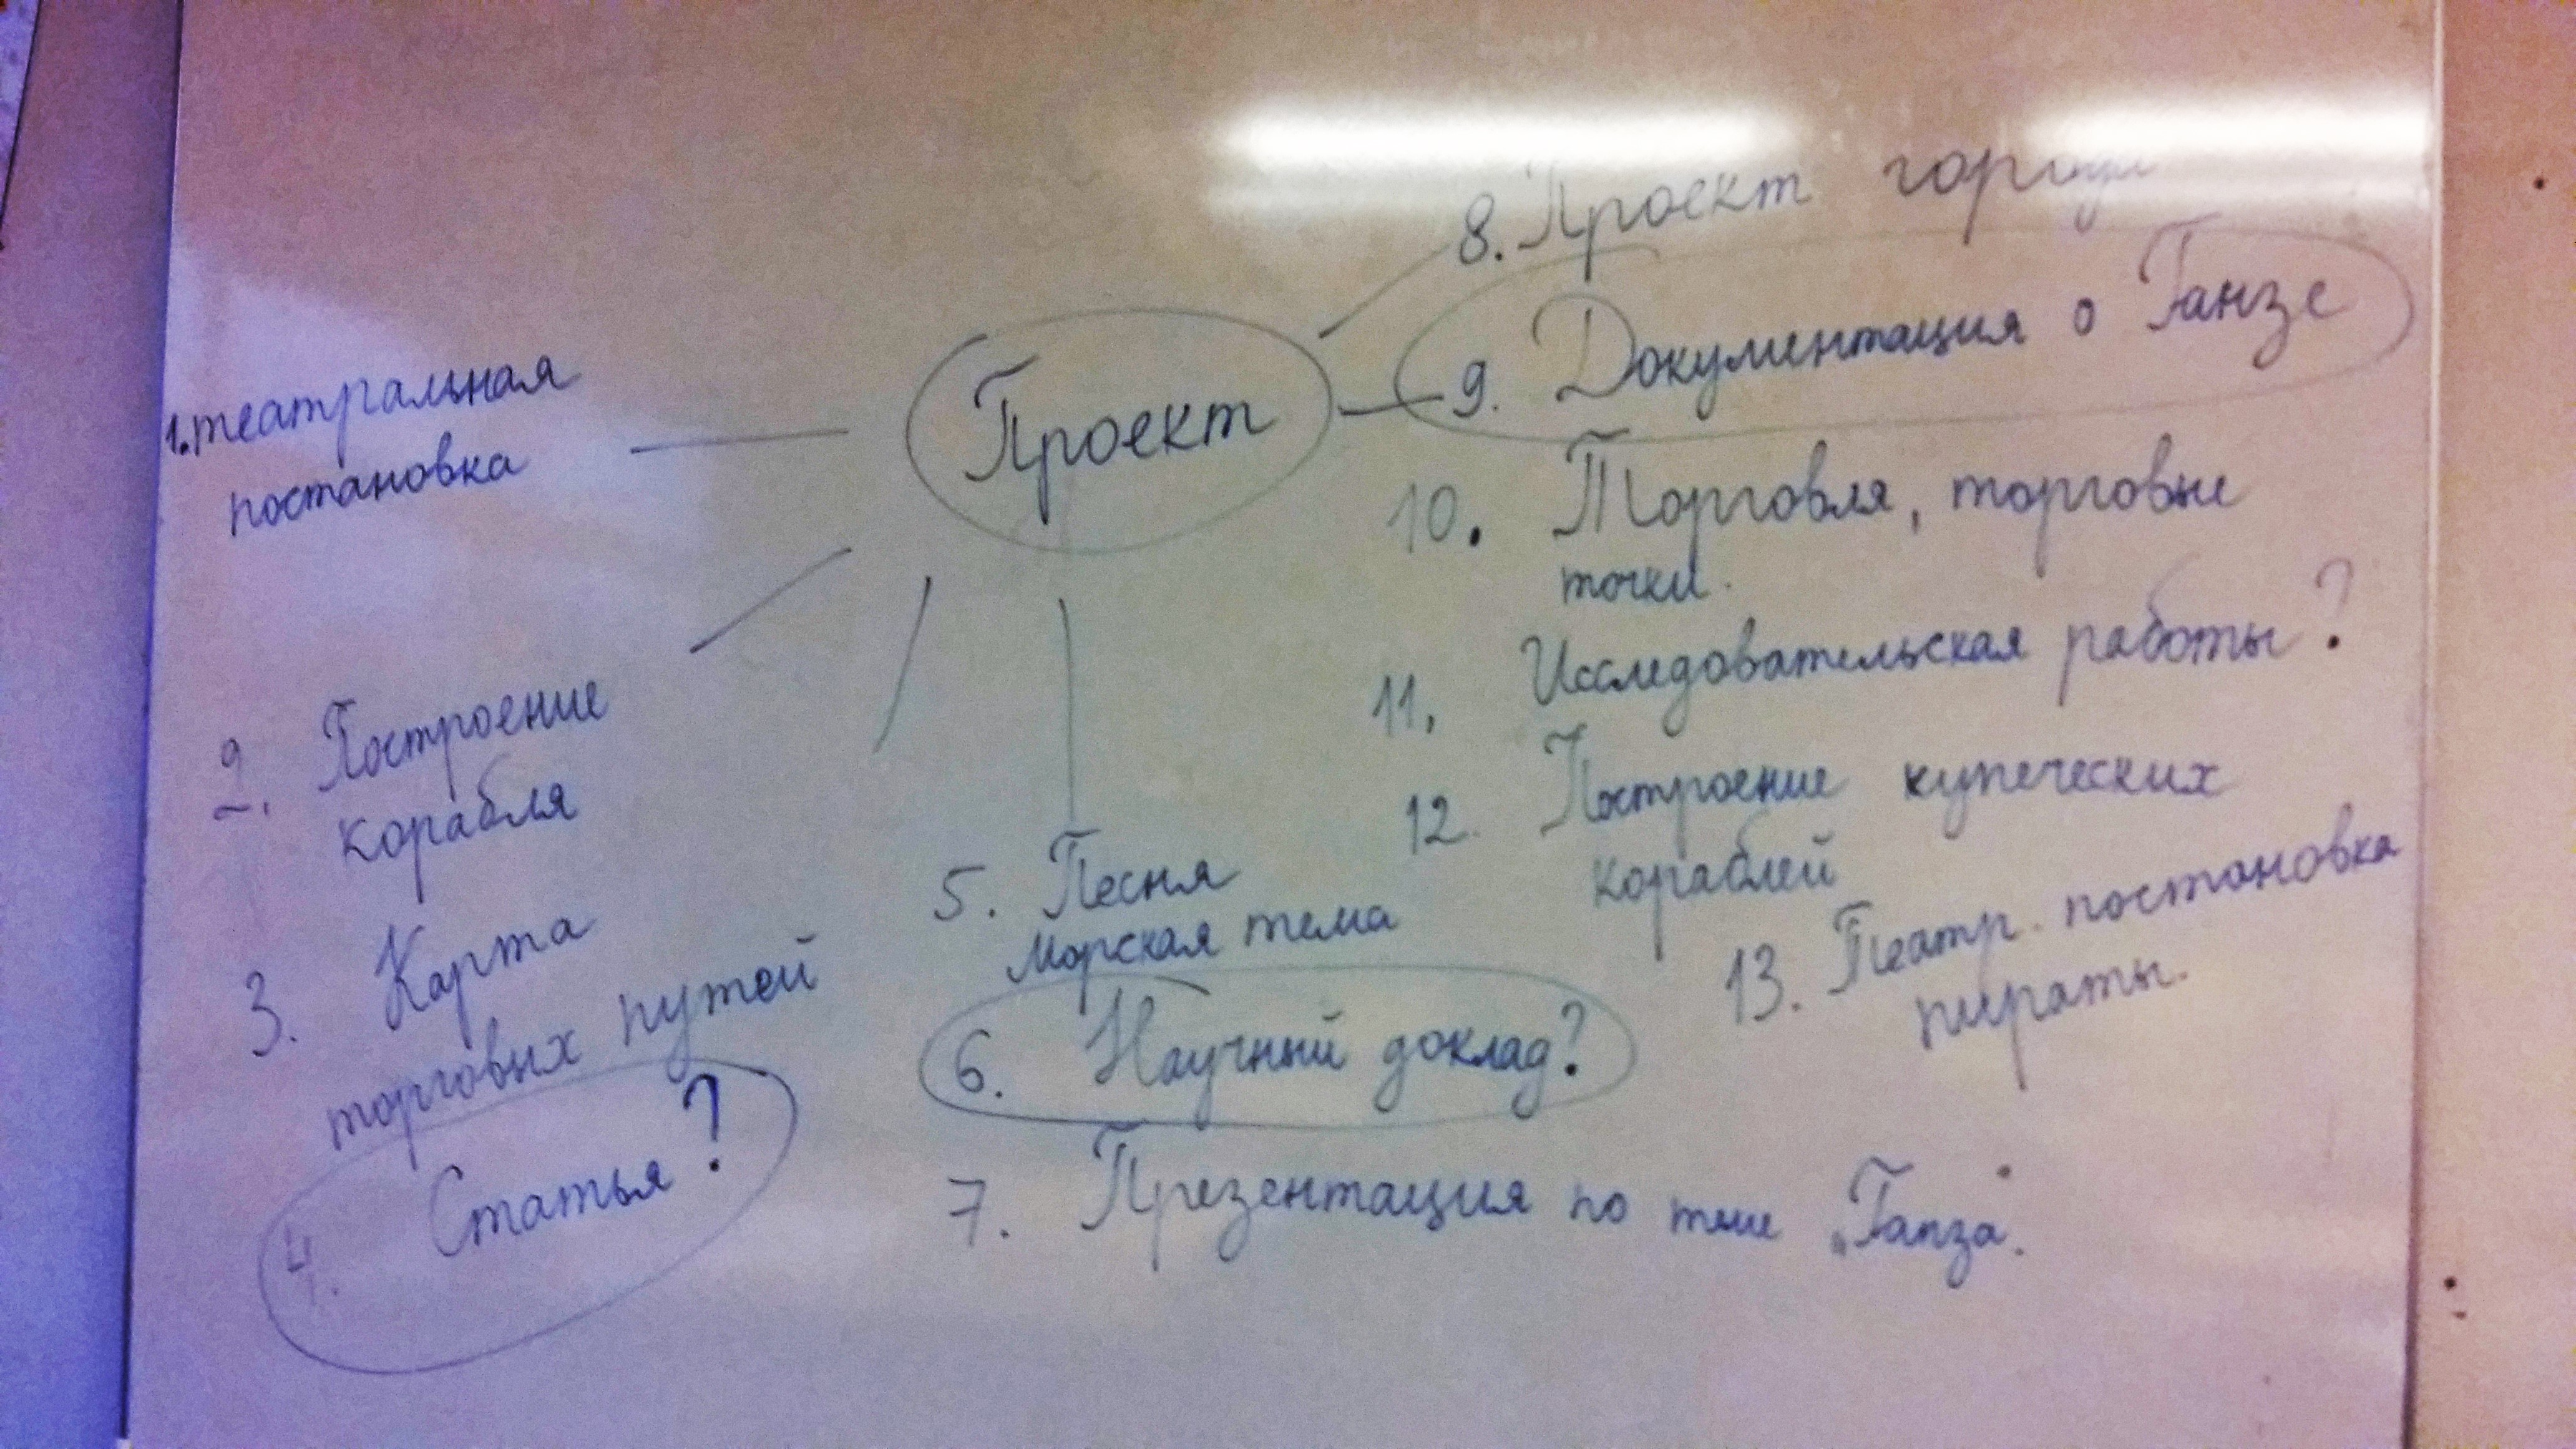 Проект
1. театральная
постановка
2. Построение
корабля
3. Карта
торговых путей
4. Статья?
5. Песня
Морская тема
6. Научный доклад?
7. Презентация по теме „Ганза".
8. Проект города
9. Документация о Ганзе
10. Торговля, торговые
точки.
11. Исследовательская работы?
12. Построение купеческих
кораблей
13. Театр. постановка
пираты.